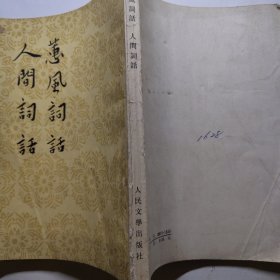 蕙風詞話
人間詞話
風詞話 人間詞話
人民文學出版社
1628